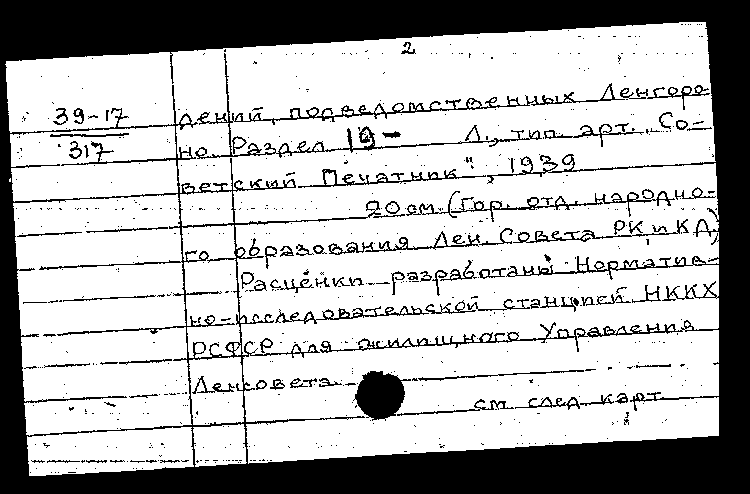 2
39-17
317
дений, подведомственных Ленгоро-
но. Раздел 19- Л., тип. арт. „Со-
ветский Печатник", 1939
20 см. (Гор. отд. народно-
го образования Лен. Совета РК и КД)
Расценки разработаны Норматив-
но-исследовательской станцией НККХ
РСФСР для жилищного Управления
Ленсовета
см след карт.